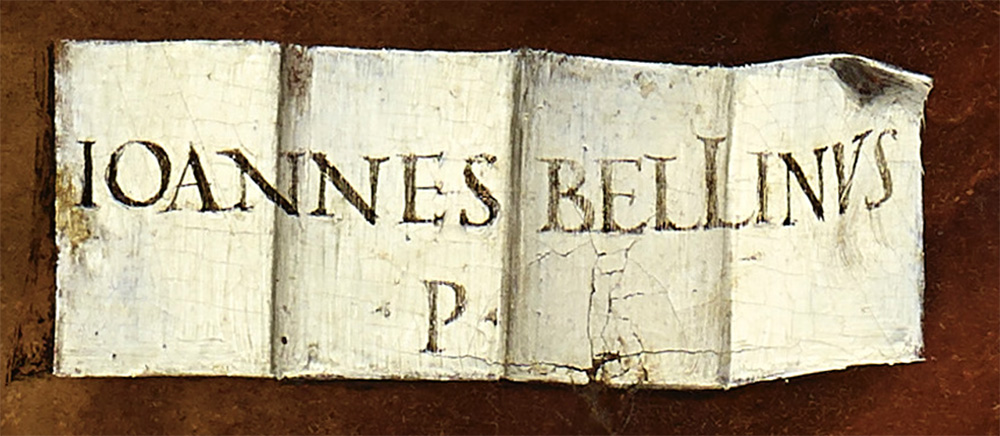 IOANNES BELLINVS
·P·